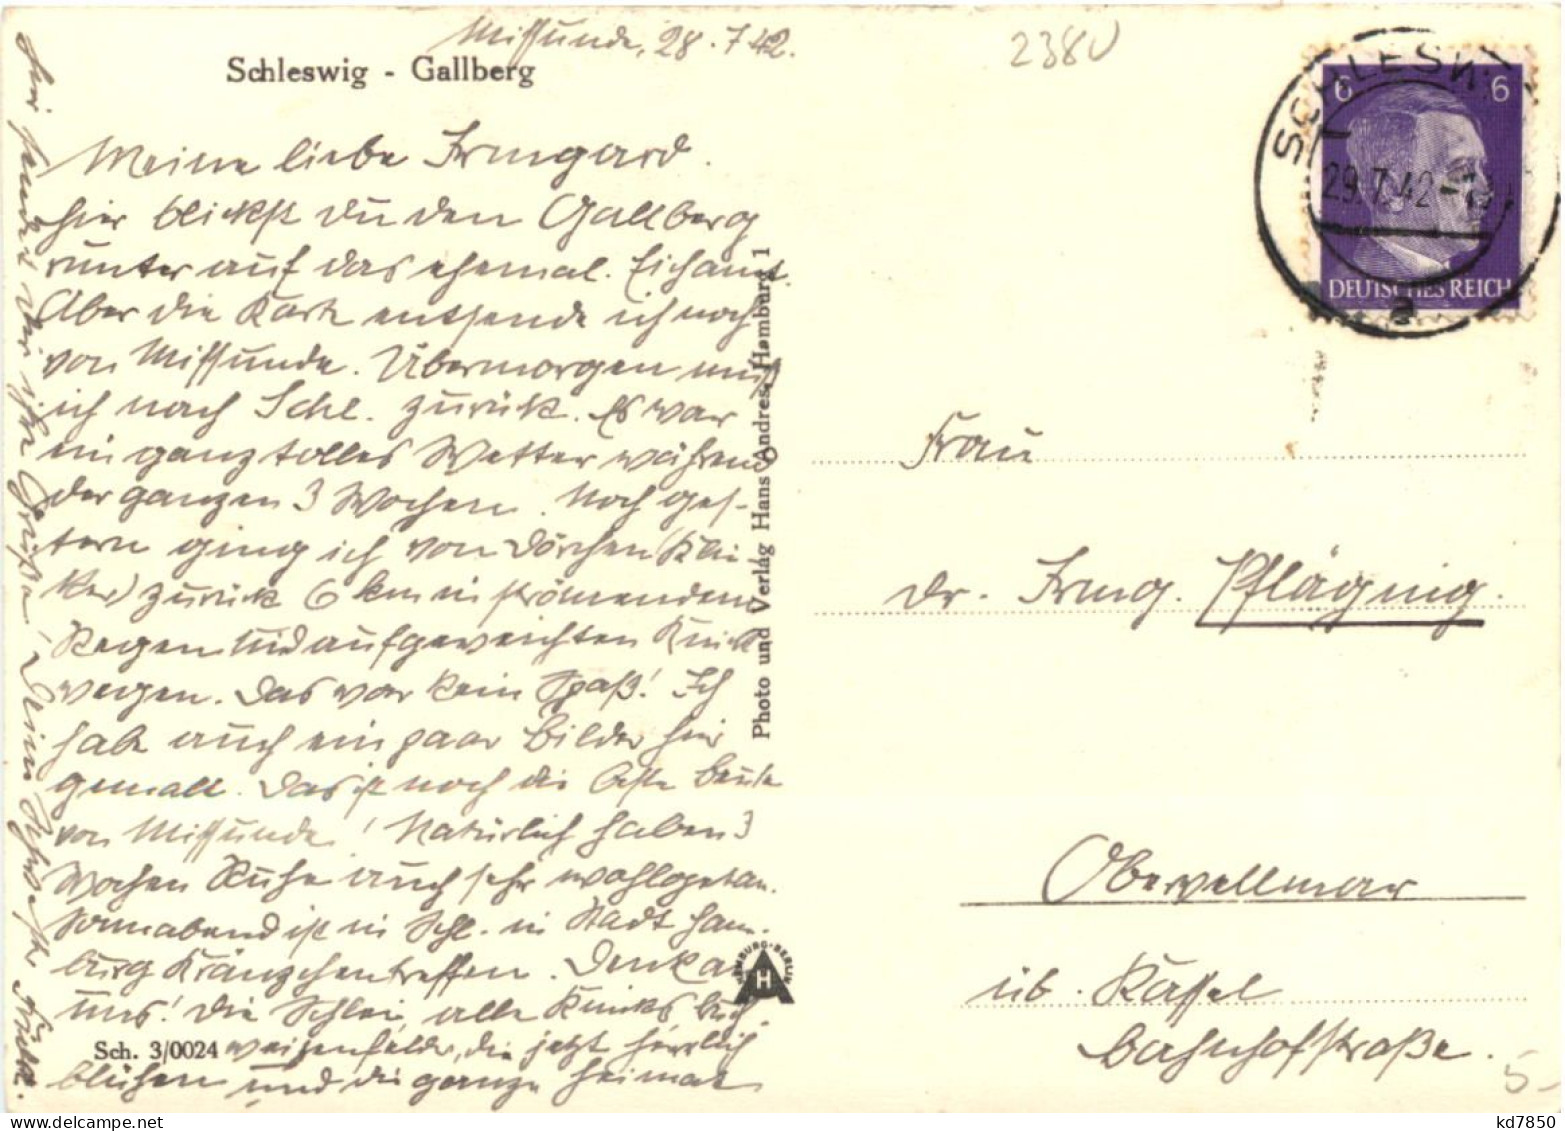 Missunde, 28.7.42.
Schleswig - Gallberg
2380
Meine liebe Irmgard.
hier blickst Du den Gallberg
runter auf das ehemal. Eichamt.
Aber die Karte entsende ich noch
von Missunde. Übermorgen muß
ich nach Schl. zurück. Es war
ein ganz tolles Wetter während
der ganzen 3 Wochen. Noch ges-
tern ging ich von Dörchen
zurück 6 km in strömendem
Regen und aufgeweichten Knick
wegen. Das war kein Spaß! Ich
habe auch ein paar Bilder hier
gemalt. Das ist noch die beste Beute
von Missunde! Natürlich haben 3
Wochen Ruhe auch sehr wohlgetan.
Sonnabend ist in Schl. in Stadt Ham-
burg Kränzchentreffen. Denk an
uns! Die Schlei, alle Knicks, Buch-
weizenfelder, die jetzt herrlich
blühen und die ganze Heimat
Sch. 3/0024
hier sendet Dir ihre Grüße! Deine
Photo und Verlag Hans Andres, Hamburg 1
HAMBURG-BERLIN
H
SCHLESWIG
29.7.42
a
6 6
DEUTSCHES REICH
Frau
Dr. Irmg. Pflüging.
Obervellmar
üb. Kassel
Bahnhofstraße.
5-
kd7850